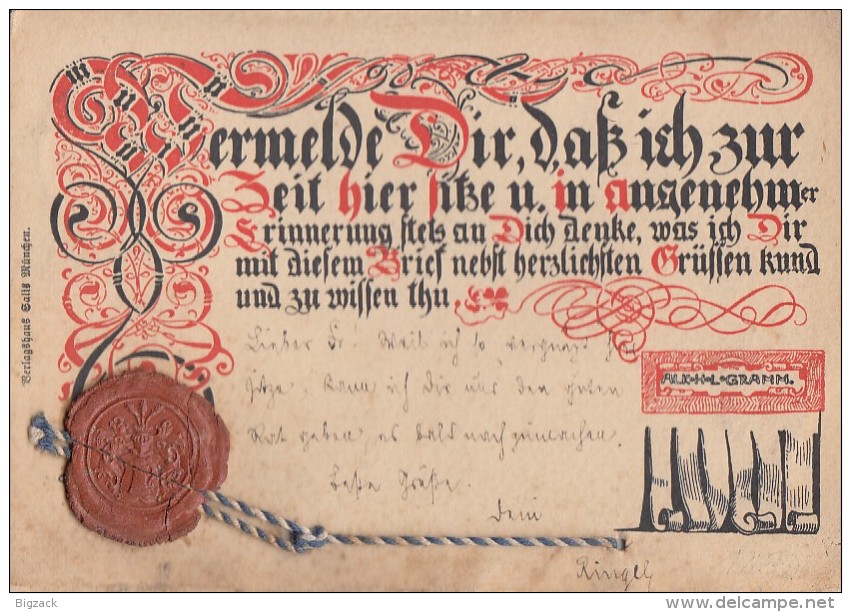 Vermelde Dir, daß ich zur
Zeit hier sitze u. in angenehmer
Erinnerung stets an Dich denke, was ich Dir
mit diesem Brief nebst herzlichsten Grüssen kund
und zu wissen thu.
Verlagshaus Salis München.
ALK-H-L-GRAMM.
Lieber Fr! Weil ich so vergnügt hier
sitze kann ich dir nur den guten
Rat geben, es bald nachzumachen.
Beste Grüße.
Dein
Ringel
Bigzack
delcampe.net